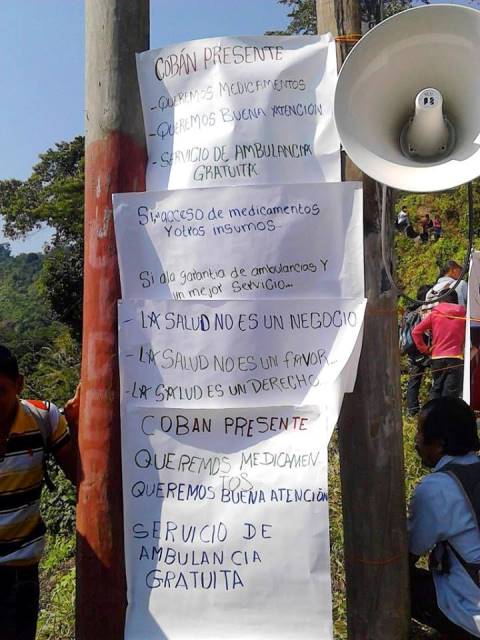 COBÁN PRESENTE
-QUEREMOS MEDICAMENTOS
-QUEREMOS BUENA ATENCIÓN
-SERVICIO DE AMBULANCIA
GRATUITA
Si, acceso de medicamentos
Yotros insumos...
Si ala garantia de ambulancias Y
un mejor servicio...
- LA SALUD NO ES UN NEGOCIO
- LA SALUD NO ES UN FAVOR...
- LA SALUD ES UN DERECHO.
COBAN PRESENTE
QUEREMOS MEDICAMEN
TOS
QUEREMOS BUENA ATENCIÓN
SERVICIO DE
AMBULANCIA
GRATUITA